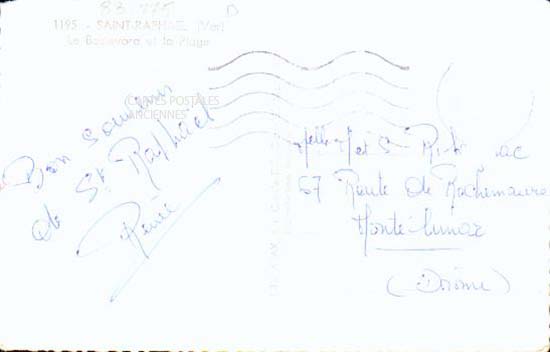 83 775
1195 - SAINT-RAPHAËL (Var)
Le Boulevard et la Plage
CARTES POSTALES
ANCIENNES
Bon Souvenir
de St Raphaël
Renée
Melle M et S
67 Route de Rochemaure
Montélimar
(Drôme)